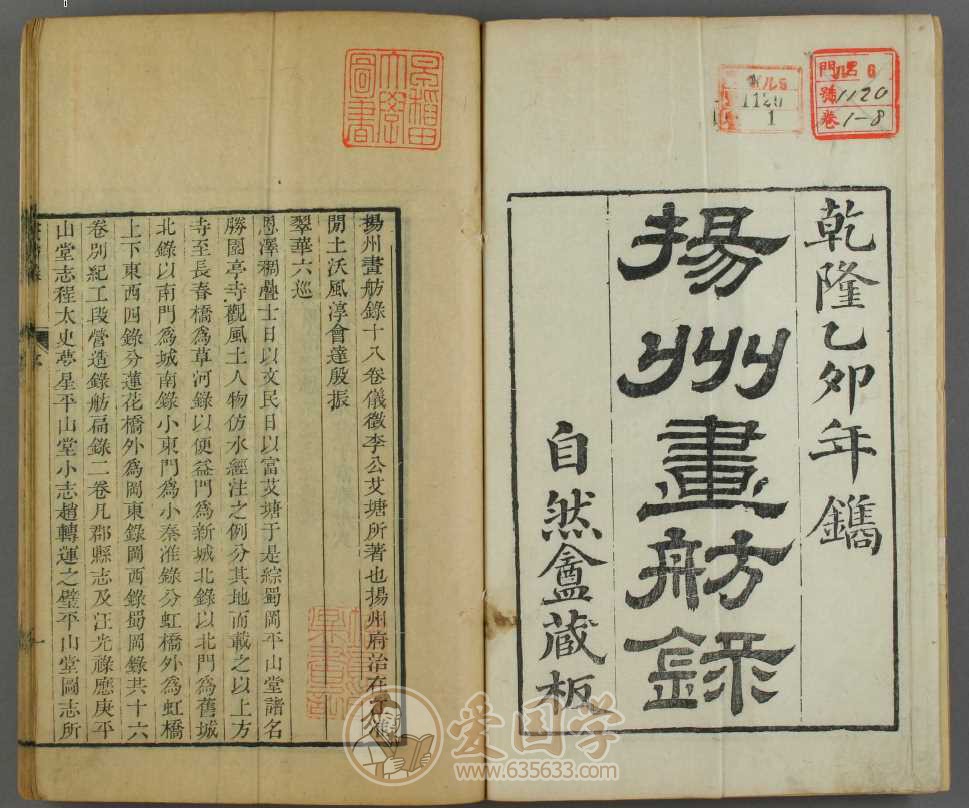 乾隆乙卯年鐫
揚州畫舫錄
自然盦藏板
門 ル 6
號 1120
卷 1-8
ル5
1120
1
早稻田
大學
圖書
揚州畫舫錄十八卷儀徵李公艾塘所著也揚州府治在
閒土沃風淳會達殷振
翠華六巡
恩澤稠疊士日以文民日以富艾塘于是綜蜀岡平山堂諸名
勝園亭寺觀風土人物仿水經注之例分其地而載之以上方
寺至長春橋爲草河錄以便益門爲新城北錄以北門爲舊城
北錄以南門爲城南錄小東門爲小秦淮錄分虹橋外爲虹橋
上下東西四錄分蓮花橋外爲岡東錄岡西錄蜀岡錄共十六
卷別紀工段營造錄舫扁錄二卷凡郡縣志及汪光祿應庚平
山堂志程太史夢星平山堂小志趙轉運之璧平山堂圖志所
爱国学
www.635633.com